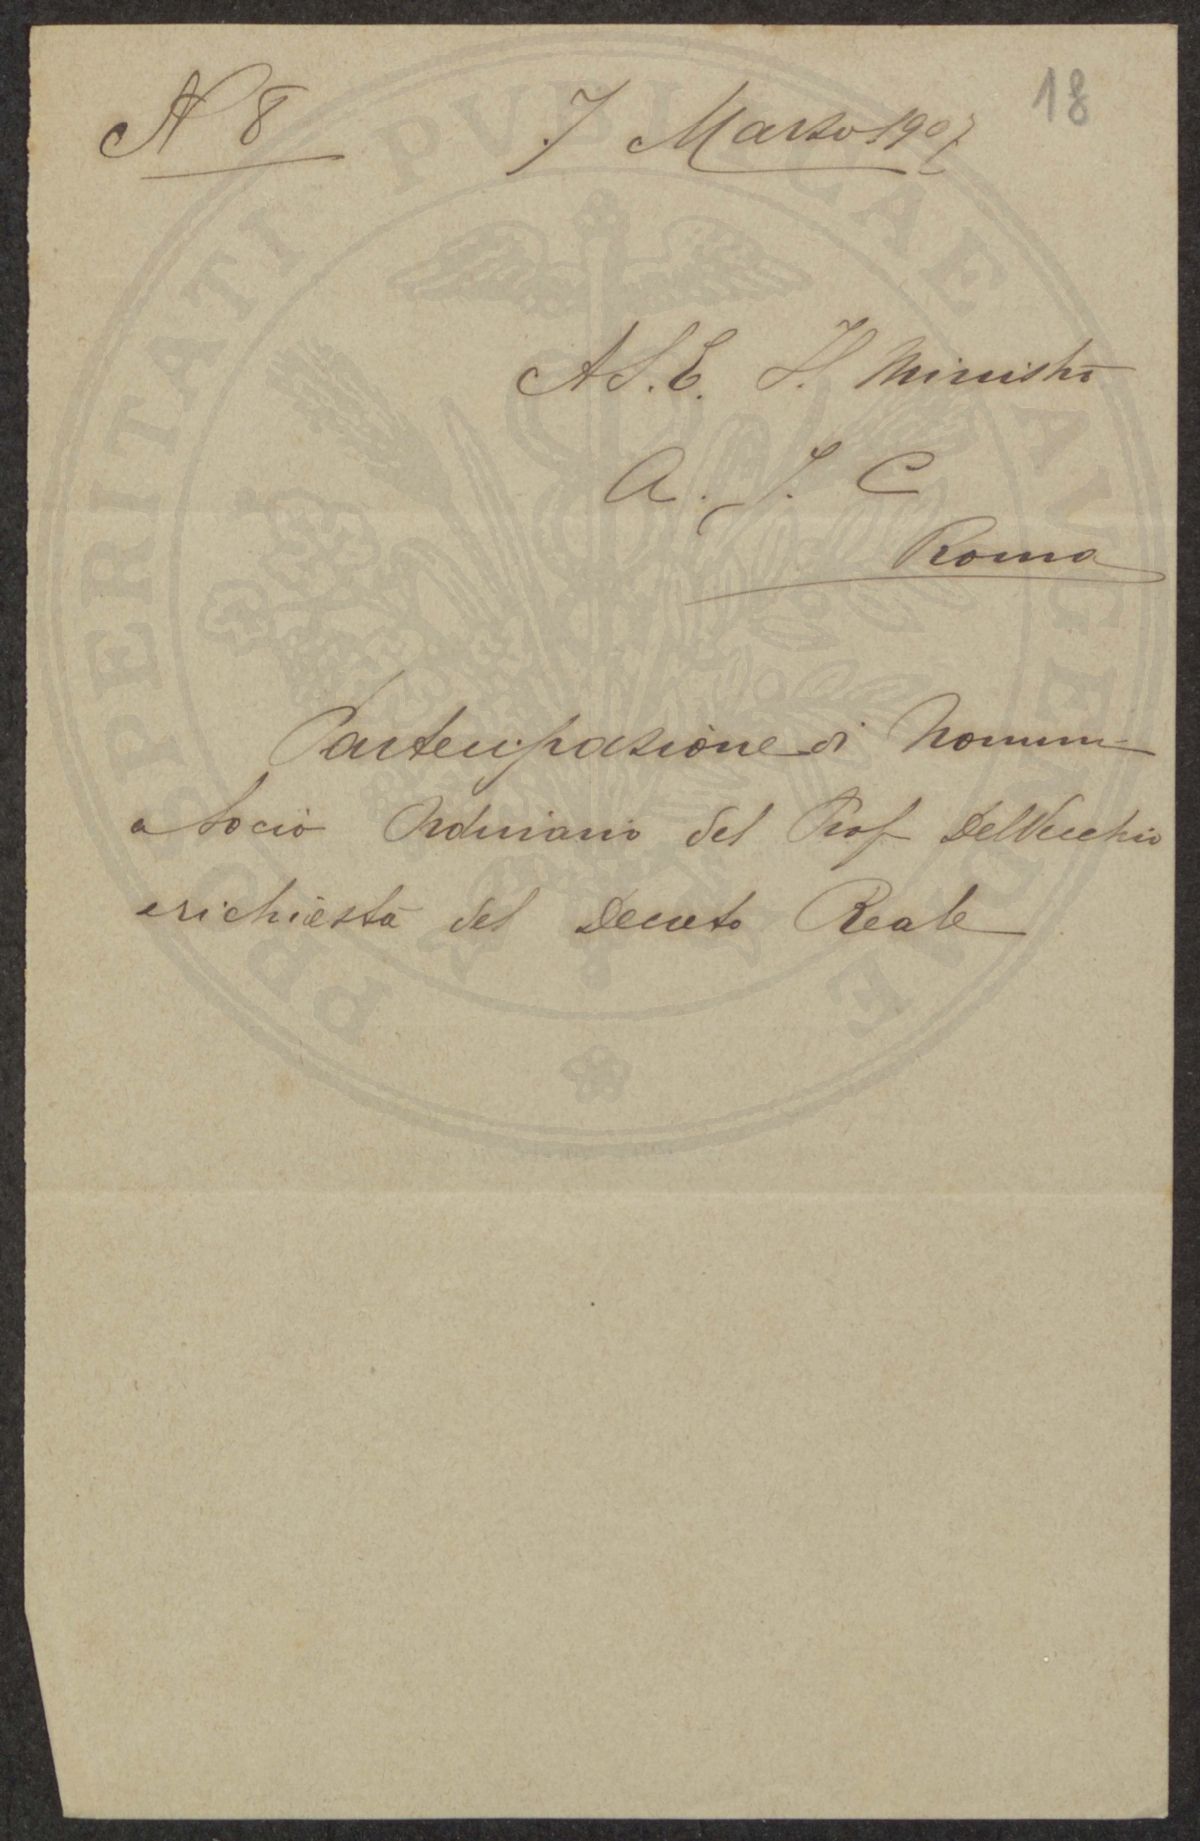 N 8 7 Marzo 1907 18
A S. E. Il Ministro
A. I. C
Roma
Partecipazione di Nomina
a Socio Ordinario del Prof Del Vecchio
e richiesta del Decreto Reale
PROSPERITATI PVBLICAE AVGENDAE